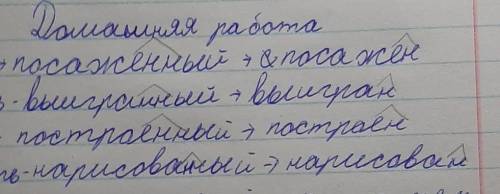 Домашняя работа
→ посаженный → посажен
- выигранный → выигран
- построенный → построен
ть - нарисованный → нарисован